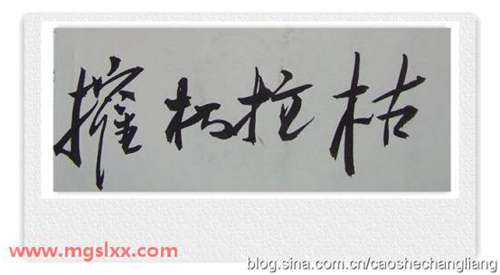 摧朽拉枯
www.mgslxx.com
blog.sina.com.cn/caoshechangliang